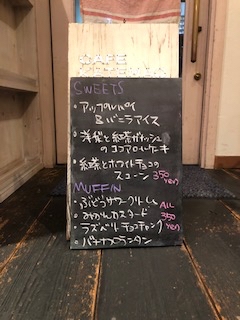 SWEETS
・アップルパイ
&バニラアイス
・洋梨と紅茶ガナッシュ
のココアロールケーキ
・紅茶とホワイトチョコの
スコーン 350yen
MUFFIN
・ぶどうサワークリーム
・みかんカスタード ALL 350yen
・ラズベリーチョコチャンク
・バナナフロランタン